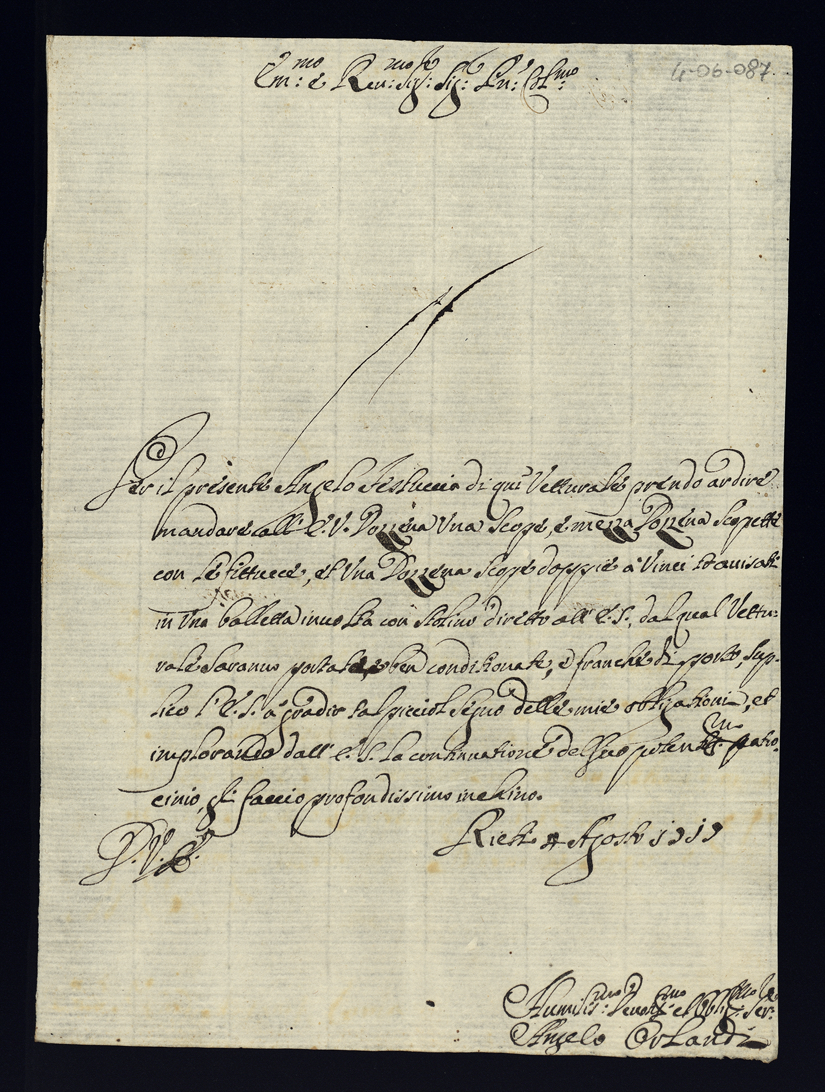 4-06-087
Em:mo e Reu:mo Sig:re Sig:re Pn: Col:mo
Per il presente Angelo Festuccia di qui Vetturale prendo ardire
mandare all' E. V. Dozzena Una Scope, e mezza Dozzena Scopette
con le fittucce, et Una Dozzena Scope doppie à Vinci
in Una balletta inuolta con Stolino diretto all' E. S., dal qual Vettu-
rale saranno portate, e ben conditionate, e franche di porto, sup-
lico l' E. S. à gradir tal picciol segno delle mie obligationi, et
implorando dall' E. S. la continuatione del suo potent:mo patro-
cinio, gli faccio profondissimo inchino.
D. V. E.
Rieti Agosto 1719
Humilis:mo Deuot:mo et Oblig:mo Ser:re
Angelo Orlandi